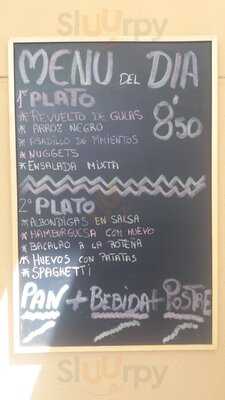 Sluurpy
MENU DEL DIA
1º PLATO
8'50
* REVUELTO DE GULAS
* ARROZ NEGRO
* ASADILLO DE PIMIENTOS
* NUGGETS
* ENSALADA MIXTA
2º PLATO
* ALBONDIGAS EN SALSA
* HAMBURGUESA CON HUEVO
* BACALAO A LA ROTEÑA
* HUEVOS CON PATATAS
* SPAGHETTI
PAN + BEBIDA + POSTRE
Sluurpy